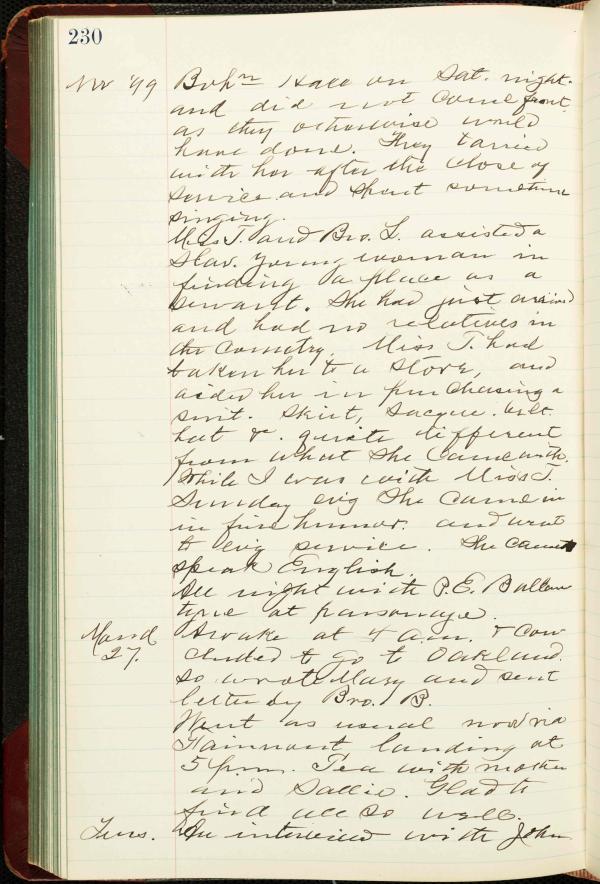 230
Nov '99 Bohn Hall on Sat. night
and did not come front
as they otherwise would
have done. They tarried
with her after the close of
service and spent sometime
singing.
Miss T. and Bro. L. assisted a
Slav. young woman in
finding a place as a
servant. She had just arrived
and had no relatives in
the country. Miss T. had
taken her to a store, and
aided her in purchasing a
suit. Skirt, Sacque. belt.
hat &. quite different
from what she came with.
While I was with Miss T.
Sunday evg she came in
in fine humor. and went
to evg service. She cannot
speak English.
All night with P.E. Ballen
tyne at parsonage.
Mond Awake at 4 a.m. & con
27. cluded to go to Oakland.
so wrote Mary and sent
letter by Bro. B.
Went as usual now via
Fairmount landing at
5 p.m. Tea with mother
and Sallie. Glad to
find all so well.
Tues. An interview with John